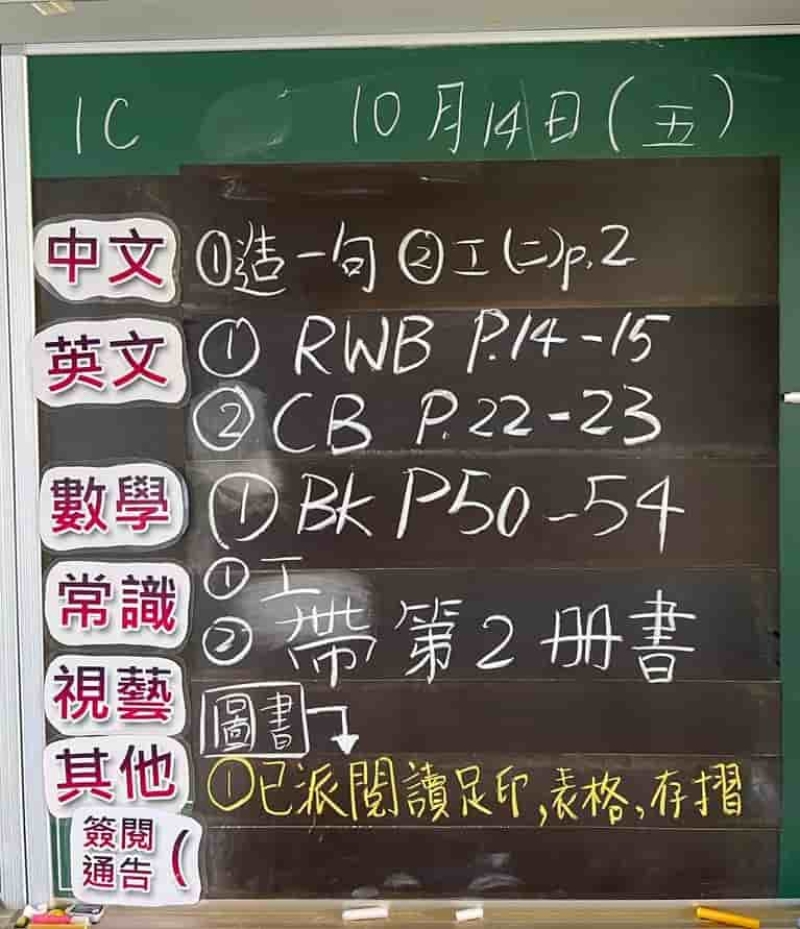 1C 10月14日(五)
中文 ①造一句 ②工(二)p.2
英文 ① RWB P.14-15
② CB P.22-23
數學 ① BK P50-54
常識 ① 工
② 帶第2册書
視藝 圖書
其他 ①已派閱讀足印,表格,存摺
簽閱
通告 (